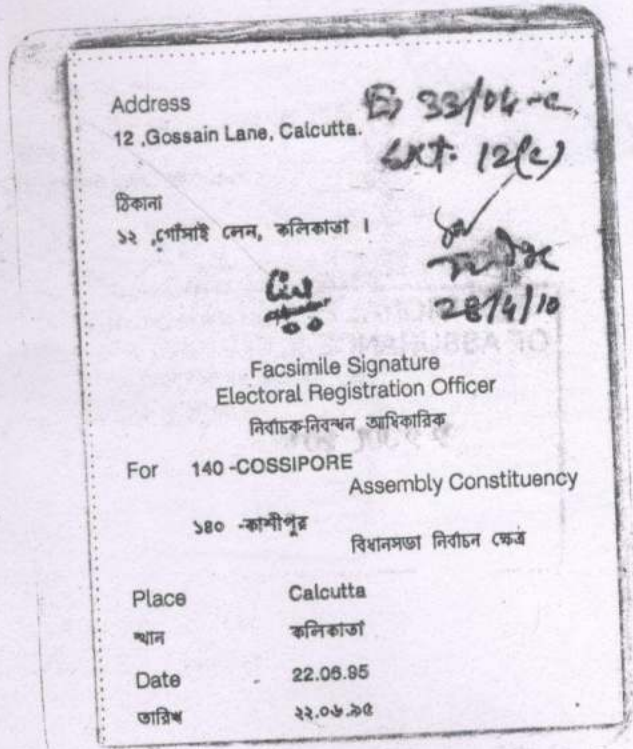 Address
12 ,Gossain Lane, Calcutta.
33/04-c
12(c)
ঠিকানা
১২ ,গোঁসাই লেন, কলিকাতা ।
28/4/10
Facsimile Signature
Electoral Registration Officer
নির্বাচক-নিবন্ধন আধিকারিক
For 140 -COSSIPORE
Assembly Constituency
১৪০ -কাশীপুর
বিধানসভা নির্বাচন ক্ষেত্র
Place Calcutta
স্থান কলিকাতা
Date 22.06.95
তারিখ ২২.০৬.৯৫